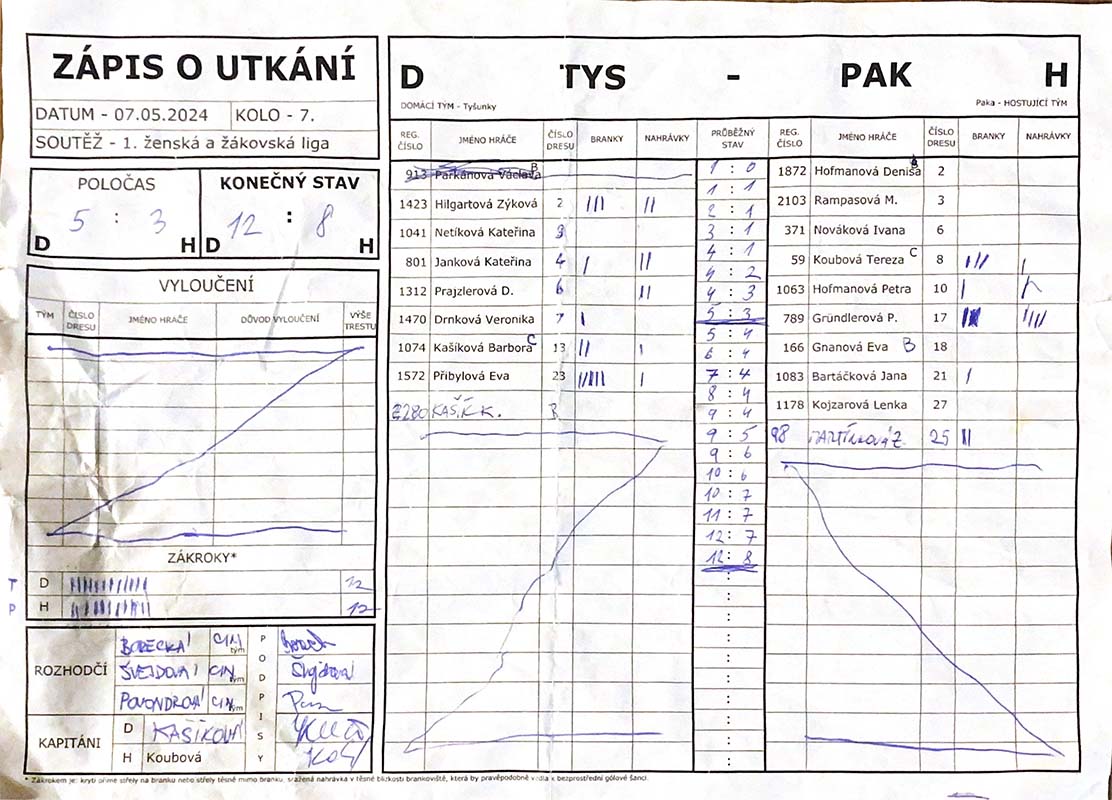 ZÁPIS O UTKÁNÍ
DATUM - 07.05.2024 KOLO - 7.
SOUTĚŽ - 1. ženská a žákovská liga
POLOČAS KONEČNÝ STAV
5 : 3 12 : 8
D H D H
VYLOUČENÍ
TÝM ČÍSLO DRESU JMÉNO HRÁČE DŮVOD VYLOUČENÍ VÝŠE TRESTU
ZÁKROKY*
T D 12
P H 12
ROZHODČÍ
BORECKÁ tým
ŠVEJDOVÁ tým
POVONDROVÁ tým
PODPISY
KAPITÁNI
D KAŠÍKOVÁ
H Koubová
D TYS - PAK H
DOMÁCÍ TÝM - Tyšunky Paka - HOSTUJÍCÍ TÝM
REG. ČÍSLO JMÉNO HRÁČE ČÍSLO DRESU BRANKY NAHRÁVKY PRŮBĚŽNÝ STAV REG. ČÍSLO JMÉNO HRÁČE ČÍSLO DRESU BRANKY NAHRÁVKY
913 Parkánová Václava B
1423 Hilgartová Zýková 2 III II
1041 Netíková Kateřina 3
801 Janková Kateřina 4 I II
1312 Prajzlerová D. 6 II
1470 Drnková Veronika 7 I
1074 Kašíková Barbora C 13 II I
1572 Přibylová Eva 23 I
2280 KAŠÍK K. B
1 : 0
1 : 1
2 : 1
3 : 1
4 : 1
4 : 2
4 : 3
5 : 3
5 : 4
6 : 4
7 : 4
8 : 4
9 : 4
9 : 5
9 : 6
10 : 6
10 : 7
11 : 7
12 : 7
12 : 8
1872 Hofmanová Denisa 2
2103 Rampasová M. 3
371 Nováková Ivana 6
59 Koubová Tereza C 8 III I
1063 Hofmanová Petra 10 I
789 Gründlerová P. 17 IIII
166 Gnanová Eva B 18
1083 Bartáčková Jana 21 I
1178 Kojzarová Lenka 27
98 MARTÍNKOVÁ Z. 25 II
* Zákrokem je: krytí přímé střely na branku nebo střely těsně mimo branku, sražená nahrávka v těsné blízkosti brankoviště, která by pravěpodobně vedla k bezprostřední gólové šanci.